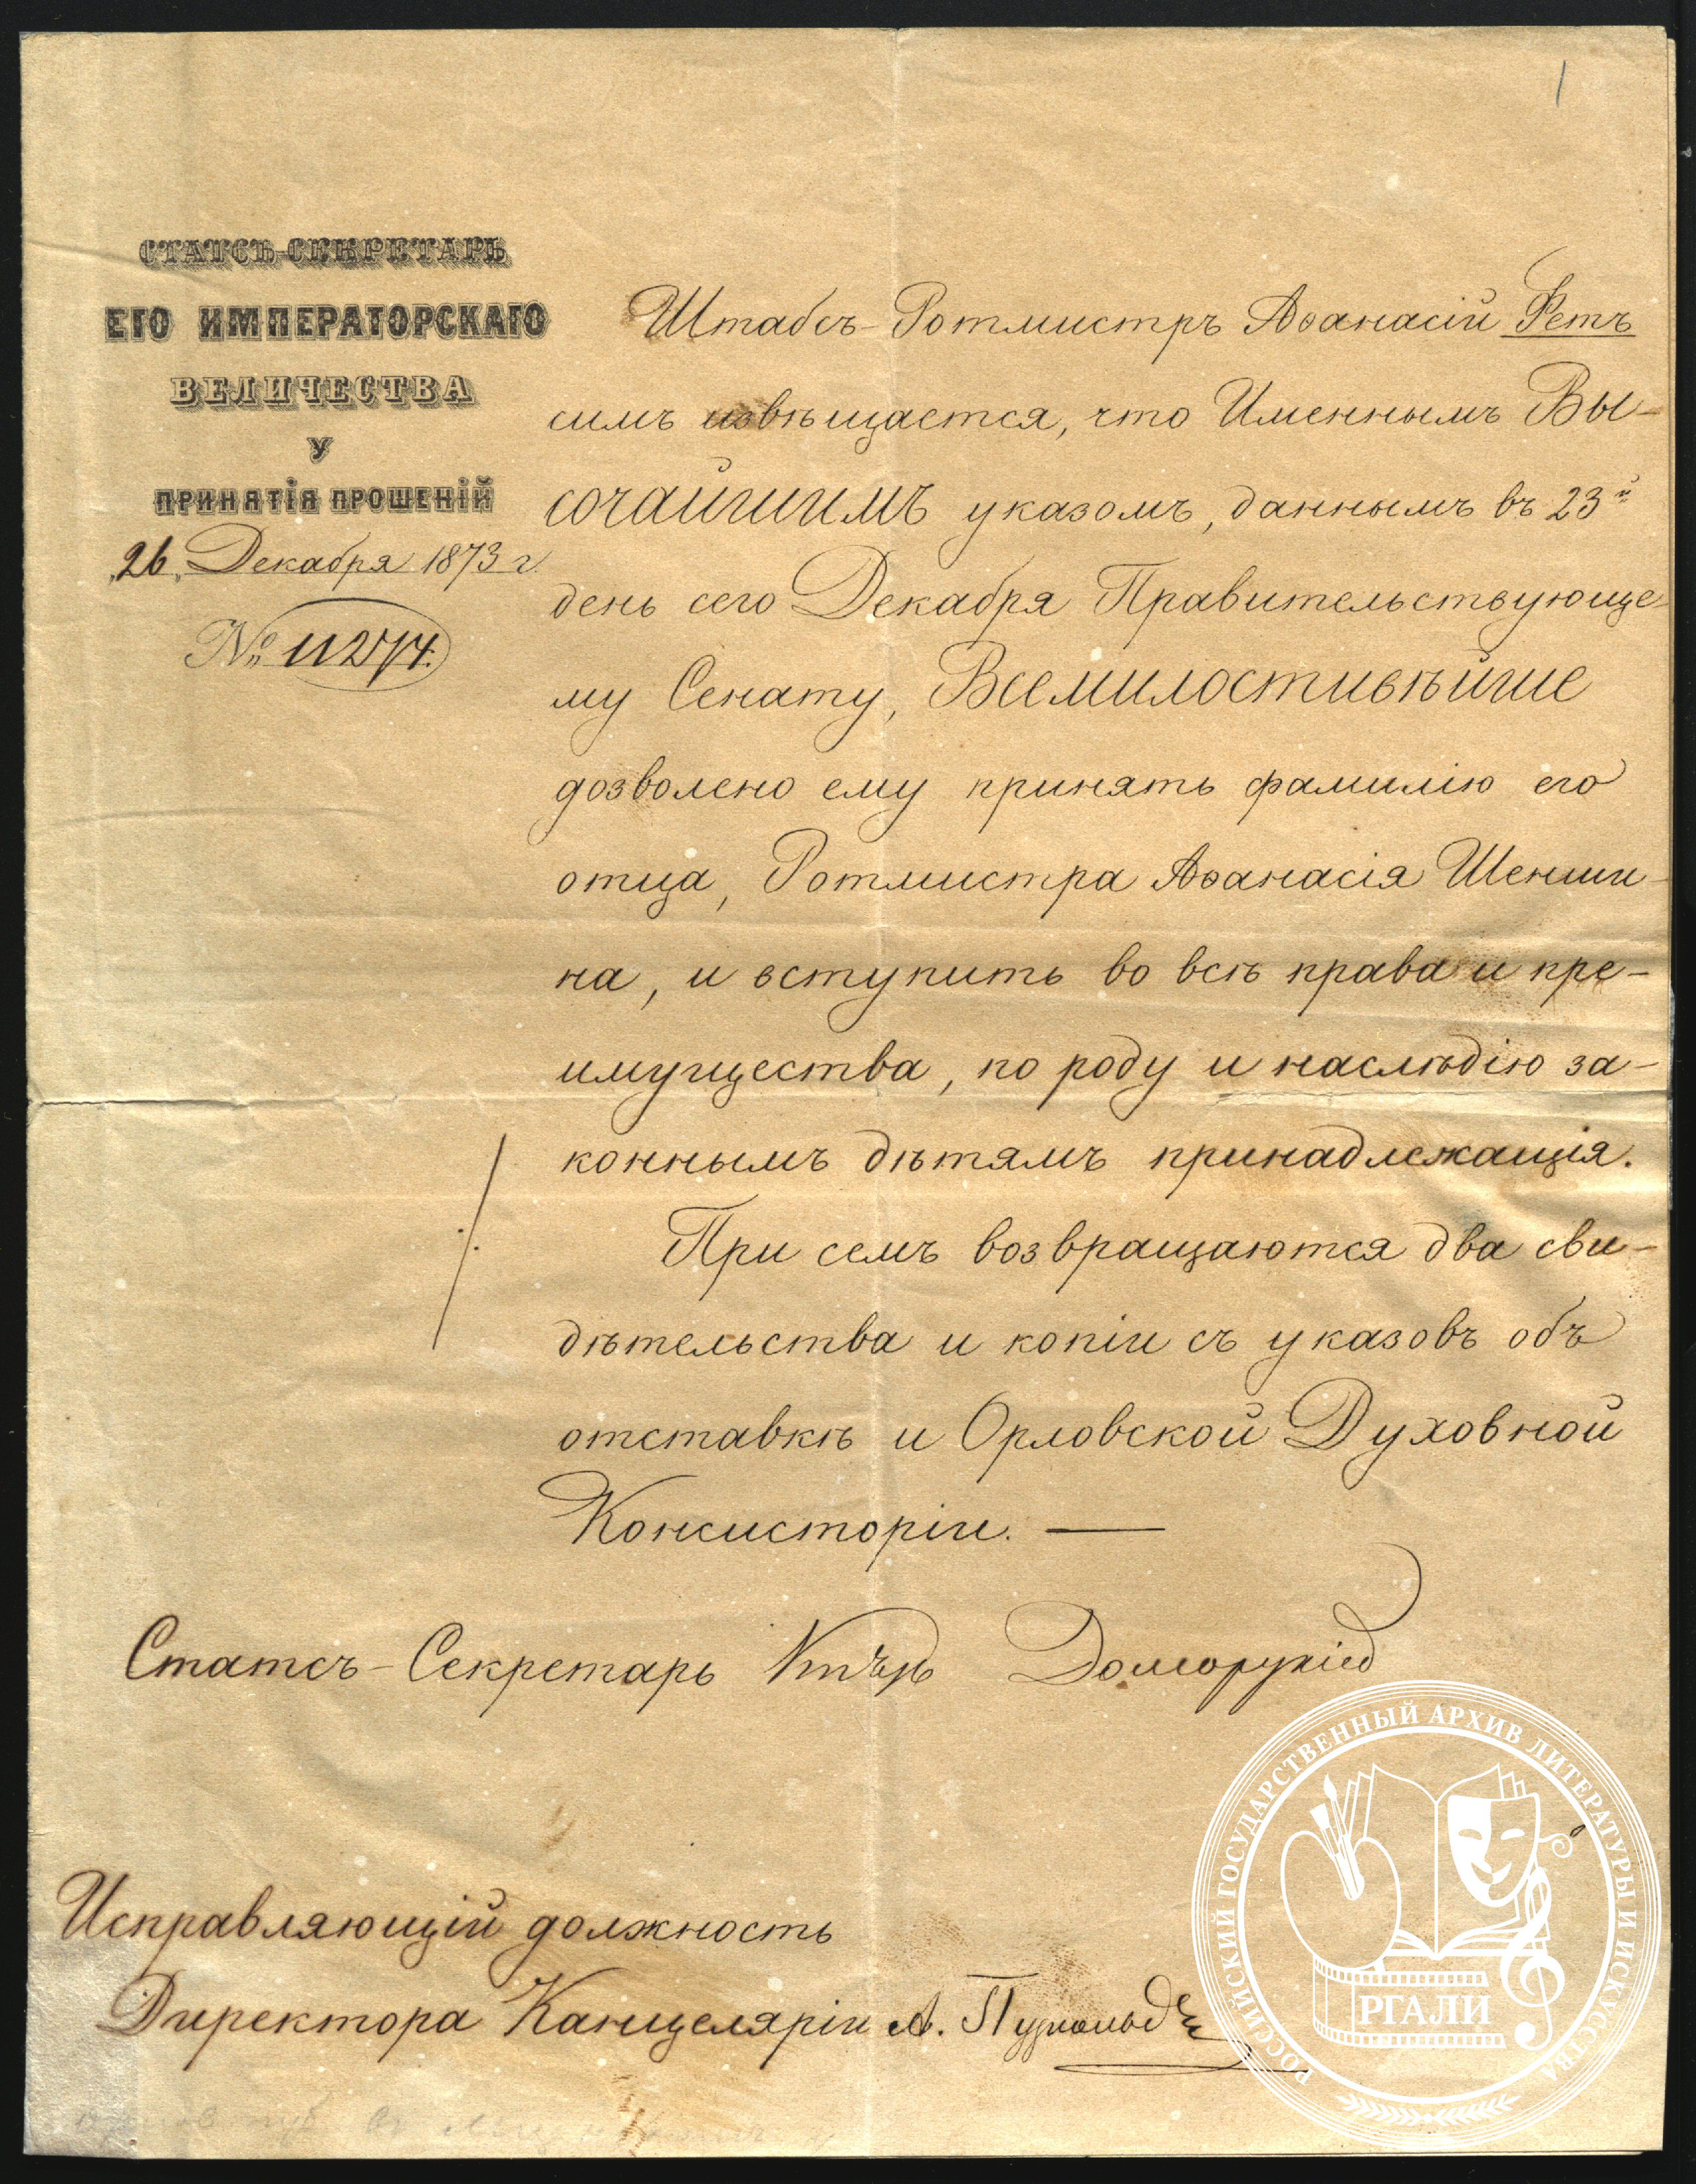 1
СТАТСЪ-СЕКРЕТАРЬ
ЕГО ИМПЕРАТОРСКАГО
ВЕЛИЧЕСТВА
У
ПРИНЯТІЯ ПРОШЕНІЙ
„26„ Декабря 1873 г.
№ 11274.
Штабсъ-Ротмистръ Аѳанасій Фетъ
симъ извѣщается, что Именнымъ Вы-
сочайшимъ указомъ, даннымъ въ 23й
день сего Декабря Правительствующе-
му Сенату, Всемилостивѣйше
дозволено ему принять фамилію его
отца, Ротмистра Аѳанасія Шенши-
на, и вступить во всѣ права и пре-
имущества, по роду и наслѣдію за-
коннымъ дѣтямъ принадлежащія.
При семъ возвращаются два сви-
дѣтельства и копіи съ указовъ объ
отставкѣ и Орловской Духовной
Консисторіи. —
Статсъ-Секретарь Князь Долгорукій
Исправляющій должность
Директора Канцеляріи А.
РОССИЙСКИЙ ГОСУДАРСТВЕННЫЙ АРХИВ ЛИТЕРАТУРЫ И ИСКУССТВА
РГАЛИ